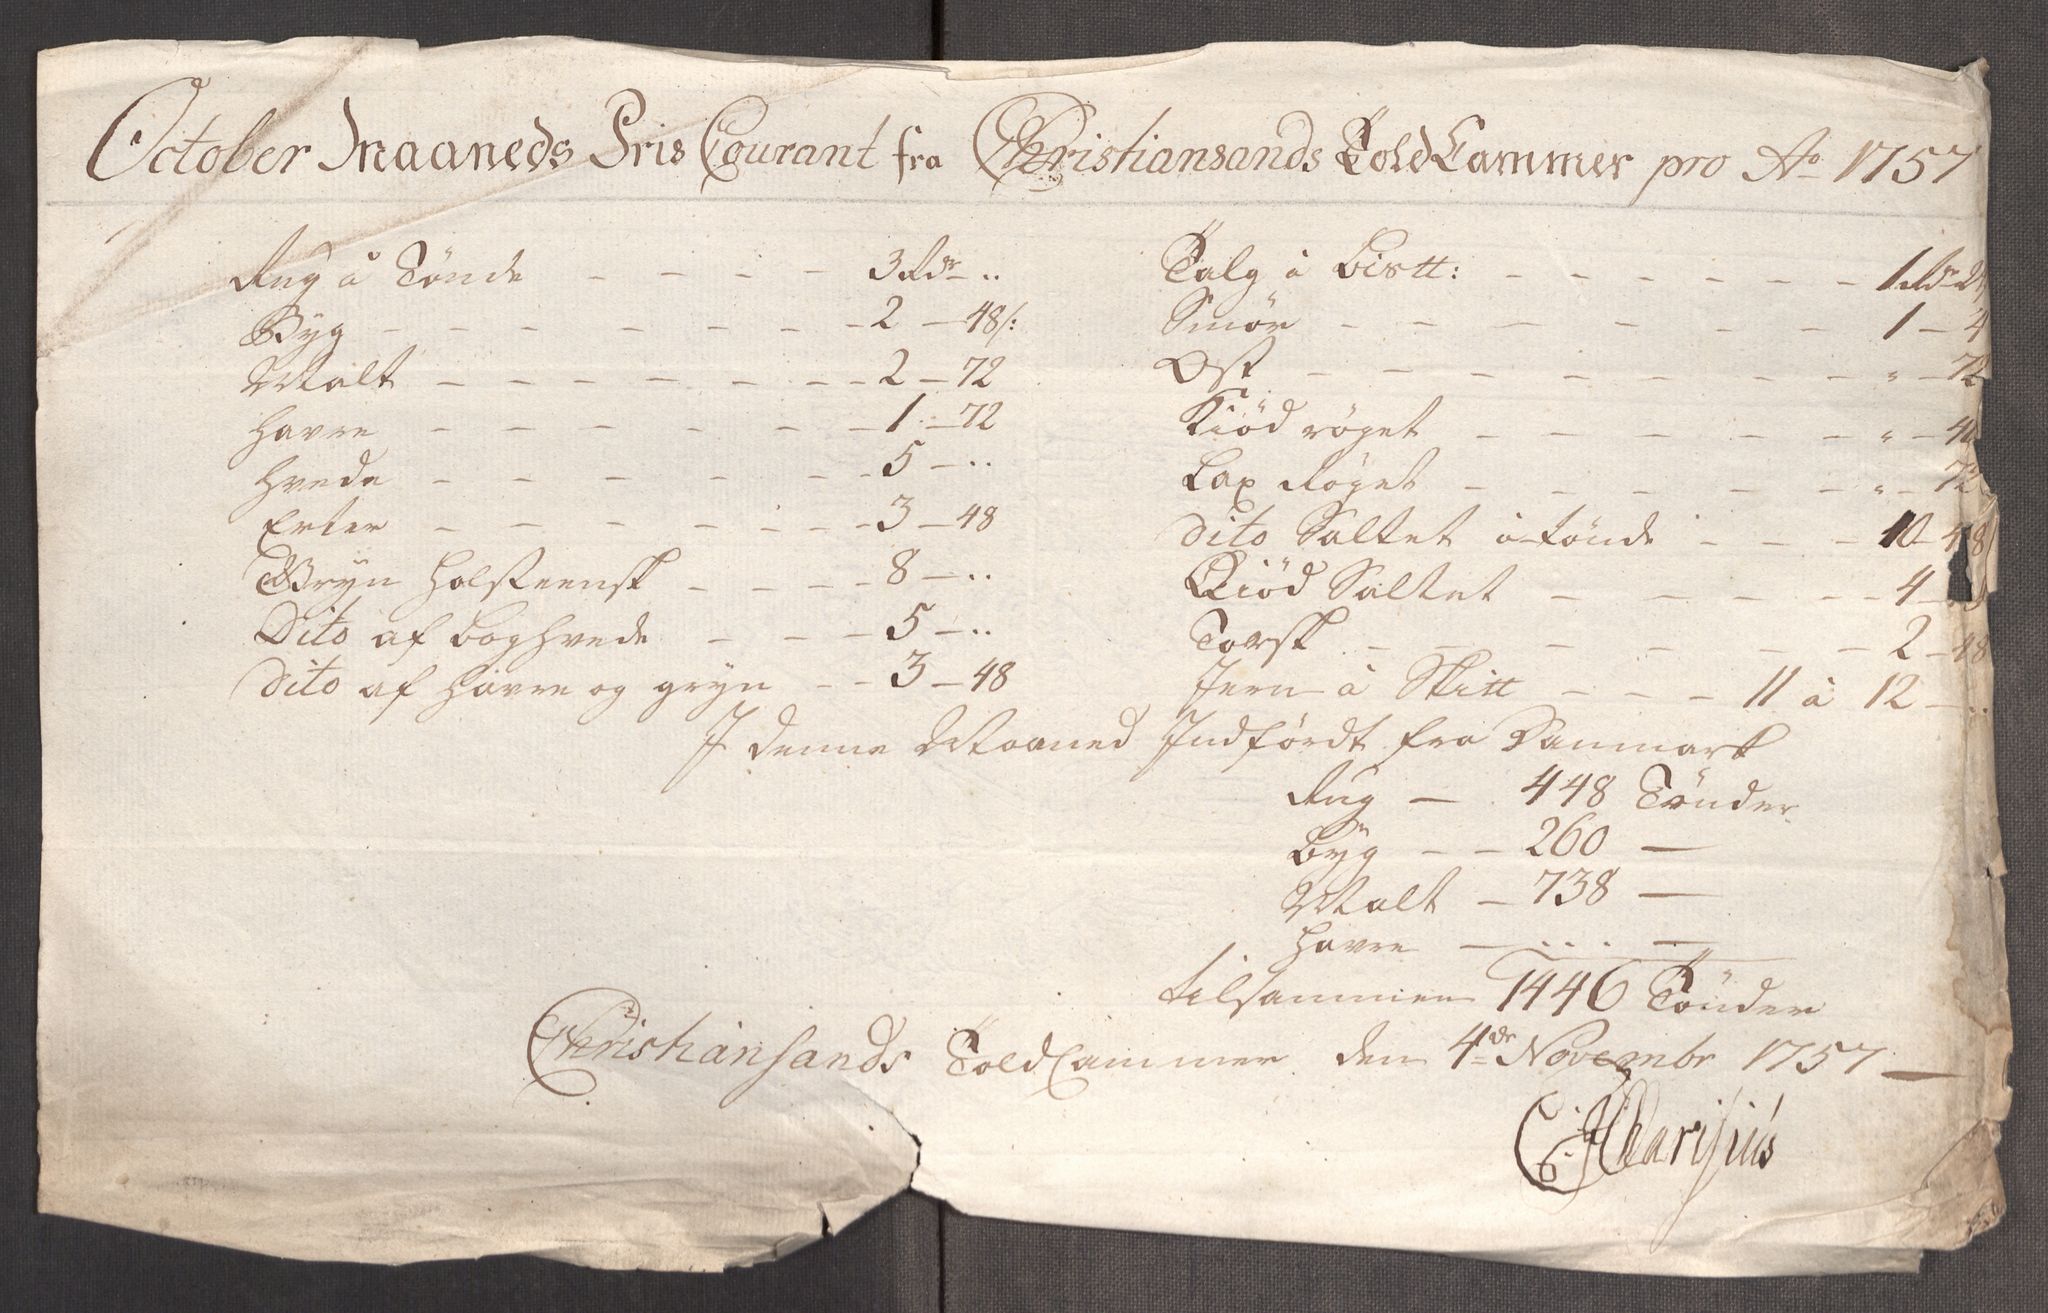 October Maaneds Pris Courant fra Christiansands Told Cammer pro Ao 1757
Rug á Tönde - - - - 3 Rdr - ..
Byg - - - - - - - 2 - 48 s:
Malt - - - - - - - 2 - 72
Havre - - - - - - - 1 - 72
Hvede - - - - - - - 5 - ..
Erter - - - - - - - 3 - 48
Gryn Holsteensk - - - - 8 - ..
Dito af Boghvede - - - 5 - ..
Dito af Havre og gryn - - 3 - 48
Talg á Bistt: - - - - - - 1 Rdr 24
Smör - - - - - - - 1 - 4
Ost - - - - - - - " - 72
Kiöd röget - - - - - " - 40
Lax Röget - - - - - - " - 72
Dito Saltet á Tönde - - - 10 - 48
Kiöd Saltet - - - - - 4 -
Torsk - - - - - - - 2 - 48
Jern á Skitt - - - 11 á 12 - ..
I denne Maaned Indfördt fra Danmark
Rug - 448 Tönder
Byg - - 260 -
Malt - 738 -
Havre - ... -
tilsammen 1446 Tönder
Christiansands Told Cammer den 4de Novembr 1757